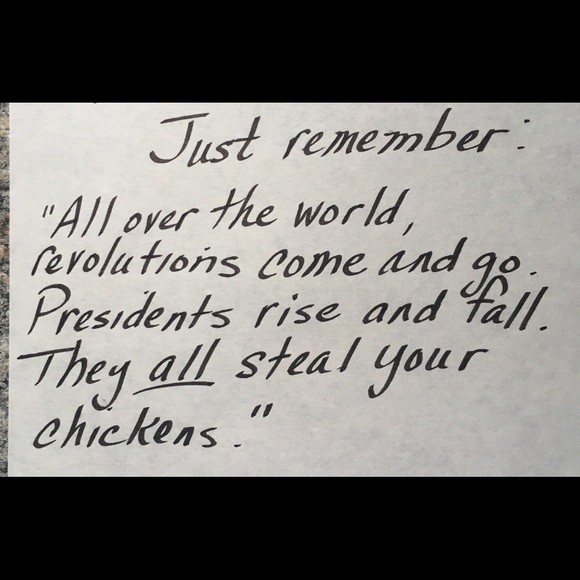 Just remember:
"All over the world,
revolutions come and go.
Presidents rise and fall.
They all steal your
chickens."